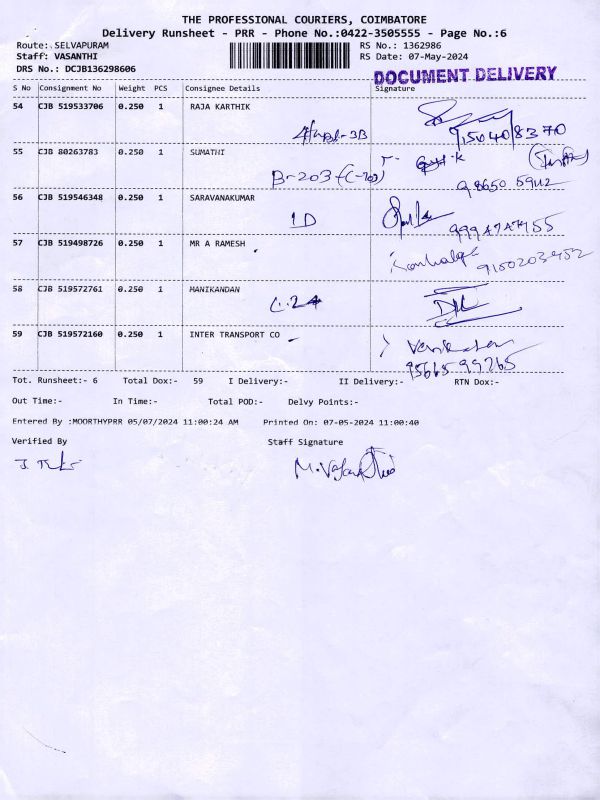 THE PROFESSIONAL COURIERS, COIMBATORE
Delivery Runsheet - PRR - Phone No.:0422-3505555 - Page No.:6
Route: SELVAPURAM
RS No.: 1362986
Staff: VASANTHI
RS Date: 07-May-2024
DRS No.: DCJB136298606
DOCUMENT DELIVERY
S No Consignment No Weight PCS Consignee Details Signature
54 CJB 519533706 0.250 1 RAJA KARTHIK
3B
55 CJB 80263783 0.250 1 SUMATHI
B-203
56 CJB 519546348 0.250 1 SARAVANAKUMAR
1D
57 CJB 519498726 0.250 1 MR A RAMESH
9150203452
58 CJB 519572761 0.250 1 MANIKANDAN
59 CJB 519572160 0.250 1 INTER TRANSPORT CO
9566599265
Tot. Runsheet:- 6 Total Dox:- 59 I Delivery:- II Delivery:- RTN Dox:-
Out Time:- In Time:- Total POD:- Delvy Points:-
Entered By :MOORTHYPRR 05/07/2024 11:00:24 AM Printed On: 07-05-2024 11:00:40
Verified By Staff Signature